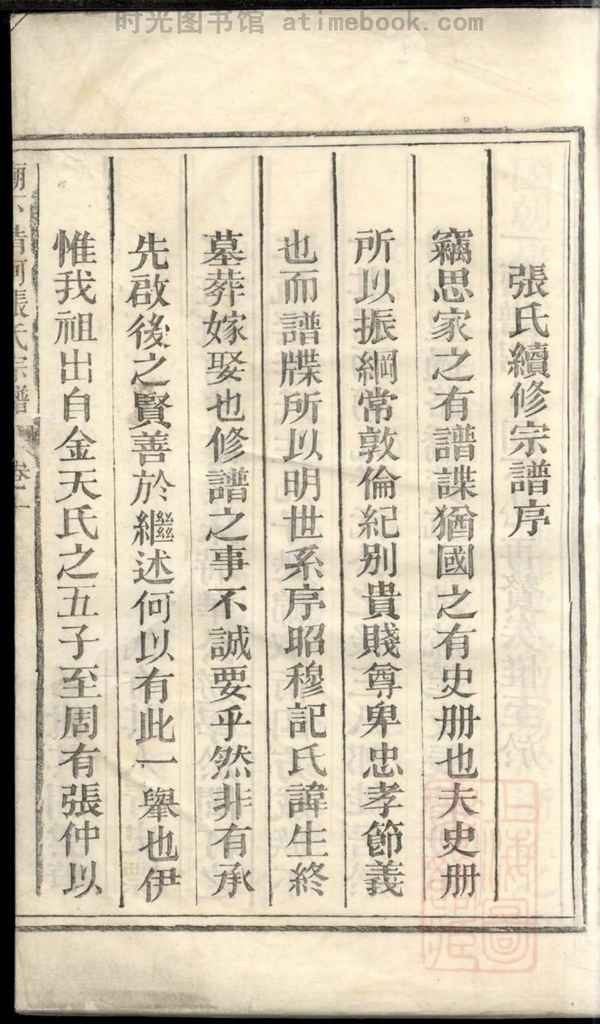 时光图书馆 atimebook.com
張氏續修宗譜序
竊思家之有譜諜猶國之有史册也夫史册
所以振綱常敦倫紀别貴賤尊卑忠孝節義
也而譜牒所以明世系序昭穆記氏諱生終
墓葬嫁娶也修譜之事不誠要乎然非有承
先啟後之賢善於繼述何以有此一舉也伊
惟我祖出自金天氏之五子至周有張仲以
張氏宗譜 卷一